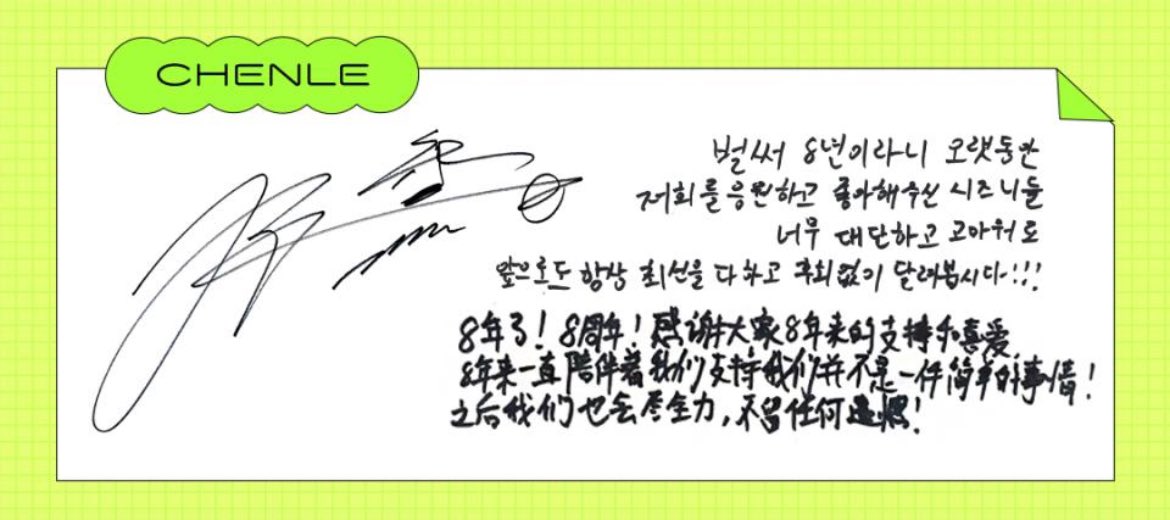 CHENLE
벌써 8년이라니 오랫동안
저희를 응원하고 좋아해주신 시즈니들
너무 대단하고 고마워요
앞으로도 항상 최선을 다하고 후회없이 달려봅시다!!!
8年了！8周年！感谢大家8年来的支持和喜爱
8年来一直陪伴着我们支持我们并不是一件简单的事情！
之后我们也会尽全力，不留任何遗憾！